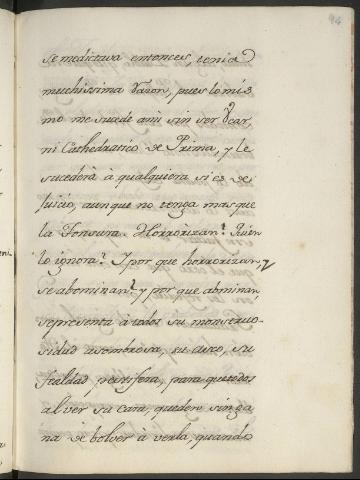 94
se medictava entonces, tenia
muchissima razon, pues lo mis
mo me sucede a mi sin ser
ni Cathedratico de Prima, y le
sucederà à qualquiera si es de
juicio, aunque no tenga mas que
la Tonsura. Horrorizan? Quien
lo ignora? Y por que horrorizan, y
se abominan? y por que abminan,
representa à todos su monstruo-
sidad asombrosa, su asco, su
fealdad pestifera, para que todos
al ver su cara, queden sin ga
na de bolver à verla, quando